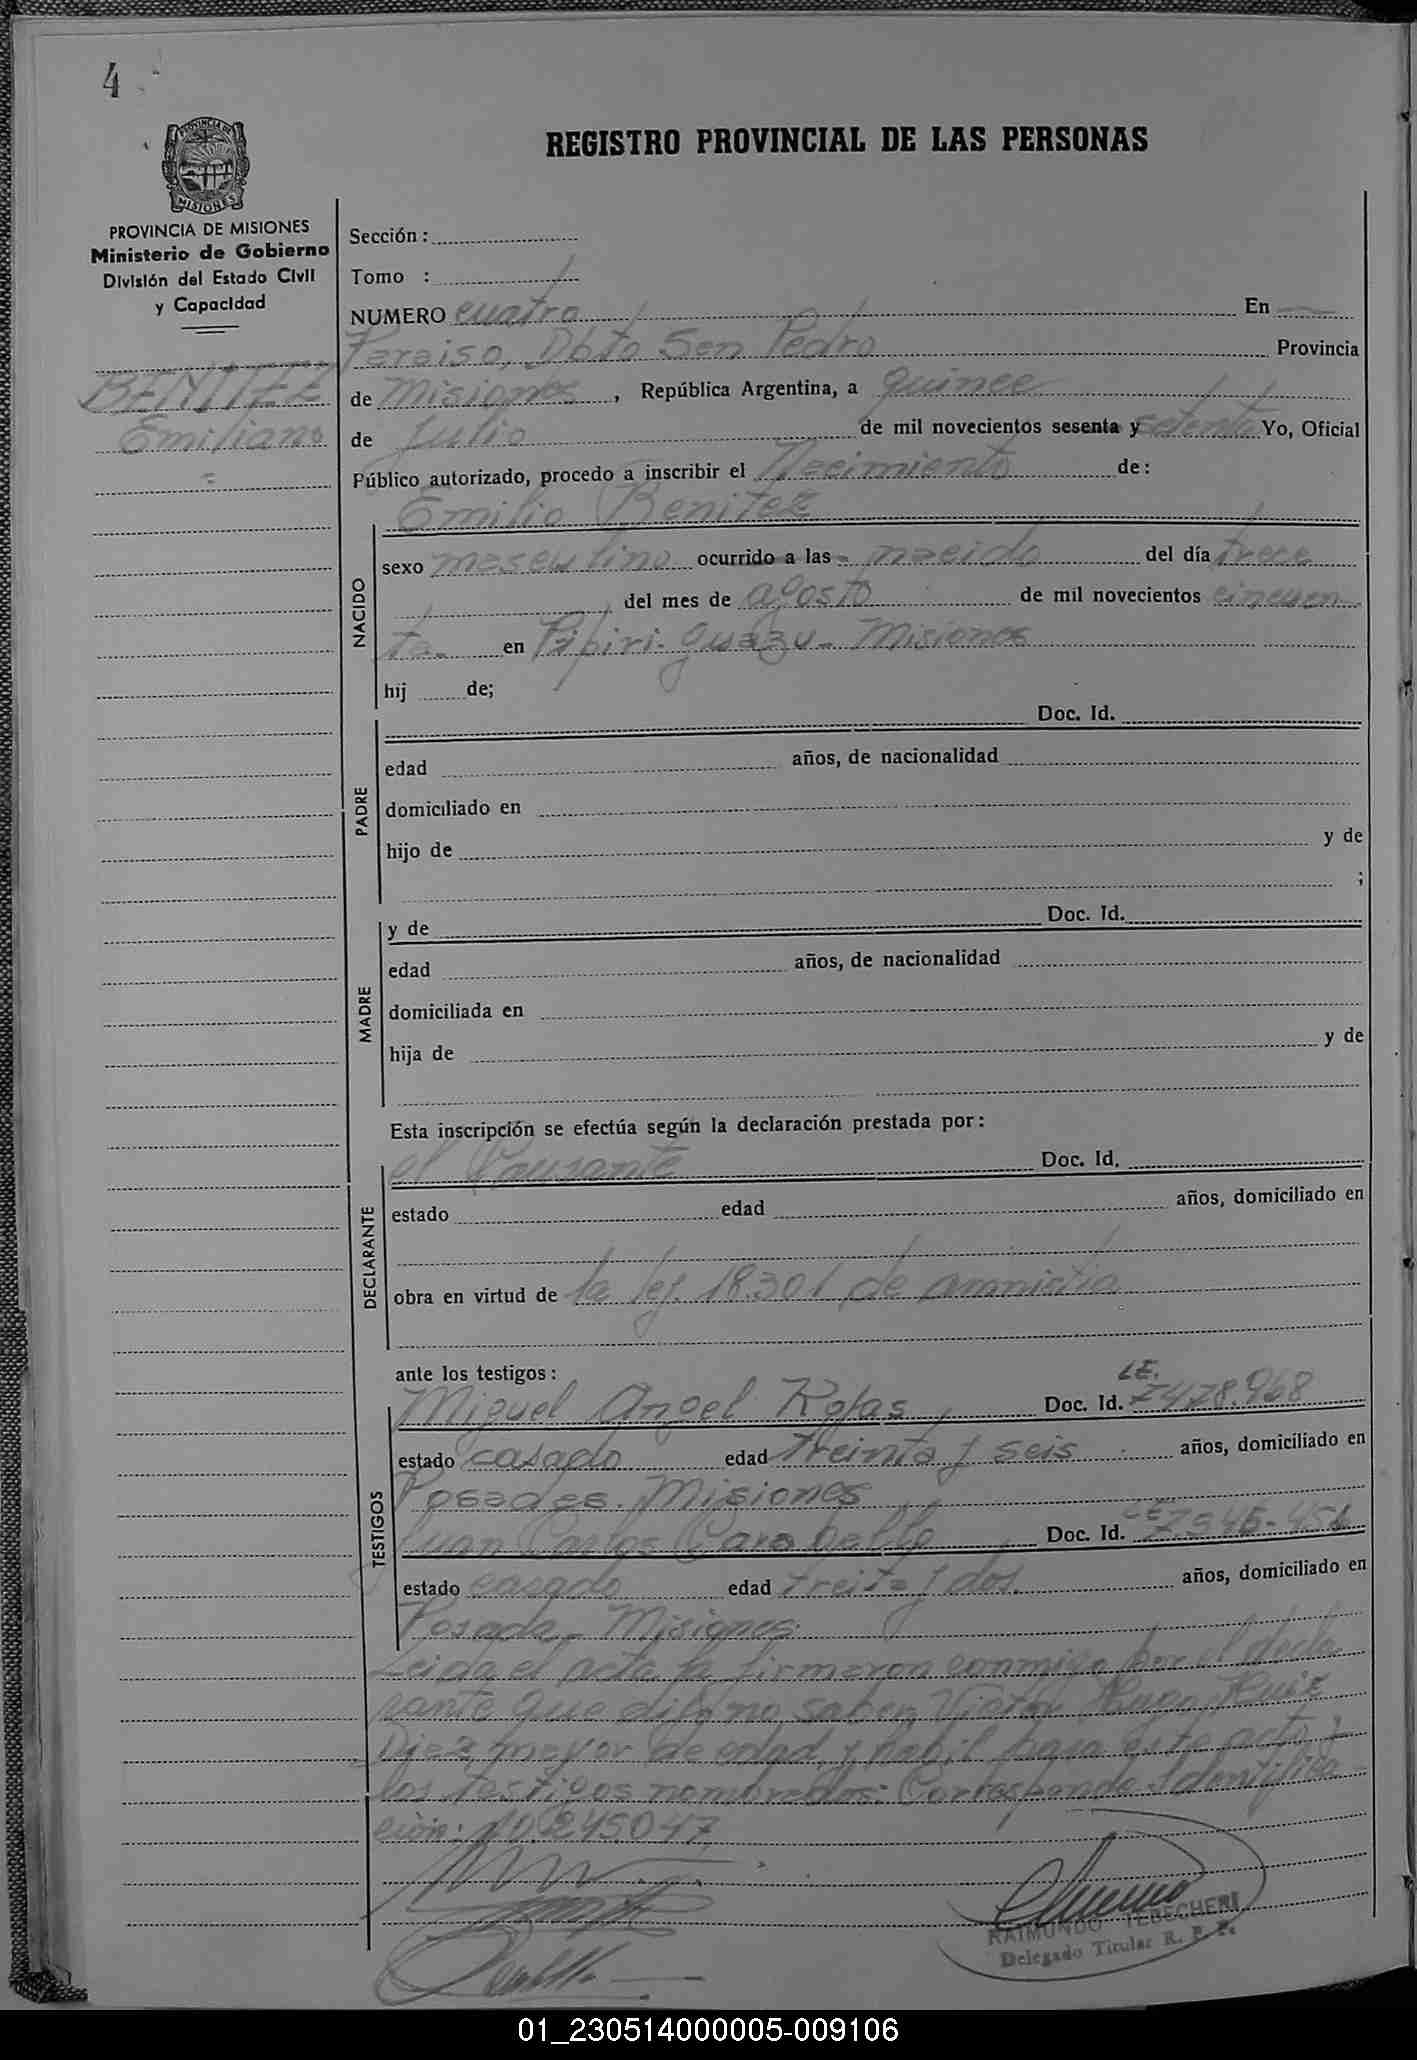 4
REGISTRO PROVINCIAL DE LAS PERSONAS
PROVINCIA DE
MISIONES
PROVINCIA DE MISIONES
Ministerio de Gobierno
División del Estado Civil
y Capacidad
BENITEZ
Emiliano
Sección:
Tomo :
NUMERO cuatro En
Paraiso, Dpto San Pedro Provincia
de Misiones, República Argentina, a quince
de Julio de mil novecientos sesenta y setenta Yo, Oficial
Público autorizado, procedo a inscribir el Nacimiento de:
Emilio Benitez
NACIDO
sexo masculino ocurrido a las - nacido del día trece
del mes de agosto de mil novecientos cincuen-
ta- en Pipiri-guazu- Misiones
hij de;
PADRE
Doc. Id.
edad años, de nacionalidad
domiciliado en
hijo de y de
;
MADRE
y de Doc. Id.
edad años, de nacionalidad
domiciliada en
hija de y de
Esta inscripción se efectúa según la declaración prestada por:
DECLARANTE
el Causante Doc. Id.
estado edad años, domiciliado en
obra en virtud de la ley. 18.301 de amnistia
ante los testigos:
TESTIGOS
Miguel Angel Rojas Doc. Id. LE. 7478.968
estado casado edad treinta y seis años, domiciliado en
Posadas. Misiones
Juan Carlos Carabello Doc. Id. LE 7.345-456
estado casado edad treita y dos. años, domiciliado en
Posada- Misiones.
Leida el acta la firmaron conmigo por el decla
rante que dijo no saber, Victor Hugo Ruiz
Diez mayor de edad y habil para este acto y
los testigos nombrados: Corresponde Identifica-
ción: 10.245.047
RAIMUNDO TEBECHERI
Delegado Titular R. P. P.
01_230514000005-009106